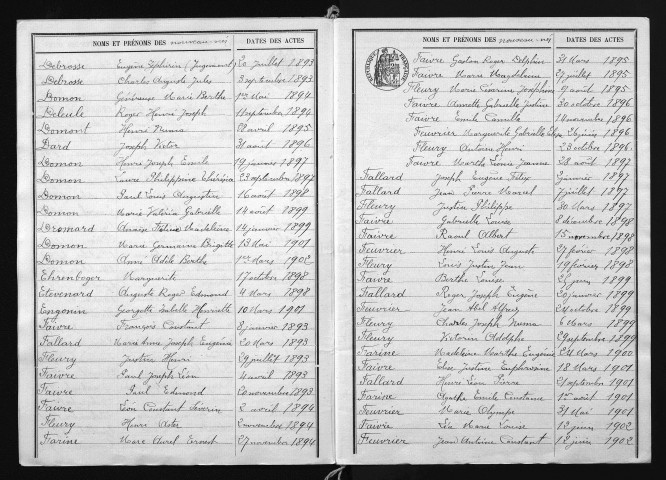 NOMS ET PRÉNOMS DES nouveau-nés DATES DES ACTES
Debrosse Eugène Zéphirin (Jugement) 20 juillet 1893
Debrosse Charles Auguste Jules 3 septembre 1893
Domon Généreuse Marie Berthe 1er Mai 1894
Deleule Roger Henri Joseph septembre 1894
Domont Henri Numa avril 1895
Dard Joseph Victor 31 août 1896
Domon Henri Joseph Emile 19 janvier 1897
Domon Laure Philippine 23 septembre 1897
Domon Paul Louis Augustin 16 août 1898
Domon Marie Valéria Gabrielle 14 août 1899
Dromard Madeleine 14 janvier 1899
Domon Maria Germaine Brigitte 13 Mai 1901
Domon Anne Adèle Berthe 1er Mars 1902
Ehrenboger Marguerite 17 octobre 1898
Etevenard Auguste Roger Edmond 4 Mars 1898
Engonin Georgette Isabelle Henriette 10 Mars 1901
Faivre François Constant 8 janvier 1893
Fallard Marie Anne Joseph Eugénie 20 Mars 1893
Fleury Justin Henri 29 juillet 1893
Faivre Paul Joseph Léon 4 avril 1893
Faivre Paul Edmond 20 novembre 1893
Faivre Léon Constant Séverin 2 avril 1894
Fleury Henri 2 novembre 1894
Farine Marc Aurel Ernest 27 novembre 1894
NOMS ET PRÉNOMS DES nouveau-nés DATES DES ACTES
Faivre Gaston Roger Delphin 31 Mars 1895
Faivre Maria Magdeleine 27 juillet 1895
Fleury Marie Jeanne Joséphine 9 août 1895
Faivre Armelle Gabrielle Justine 30 octobre 1896
Faivre Emile Camille 14 novembre 1896
Feuvrier Marguerite Gabrielle 26 janvier 1896
Fleury Antoine Henri 23 octobre 1896
Faivre Marthe Léonie Jeanne 28 août 1897
Fallard Joseph Eugène Félix janvier 1897
Fallard Jean Pierre Marcel juillet 1897
Fleury Justin Philippe 30 Mars 1897
Faivre Gabrielle Louise 8 décembre 1898
Faivre Raoul Albert 15 novembre 1898
Feuvrier Henri Louis August 27 février 1898
Fleury Louis Justin Jean 19 février 1898
Faivre Berthe Louise juin 1899
Fallard Roger Joseph Eugène 20 janvier 1899
Feuvrier Jean Abel Alfred 24 octobre 1899
Fleury Charles Joseph Numa 6 Mars 1899
Fleury Victorin Adolphe 29 septembre 1899
Farine Madeleine Marthe Eugénie 24 Mars 1900
Faivre Elise Justine Euphrosine 18 Mars 1901
Fallard Henri Léon Pierre 21 septembre 1901
Farine Agathe Emilie Constance 1er août 1901
Feuvrier Marie Olympe 31 Mai 1901
Faivre Léa Marie Louise 12 juin 1902
Feuvrier Jean Antoine Constant 12 juin 1902